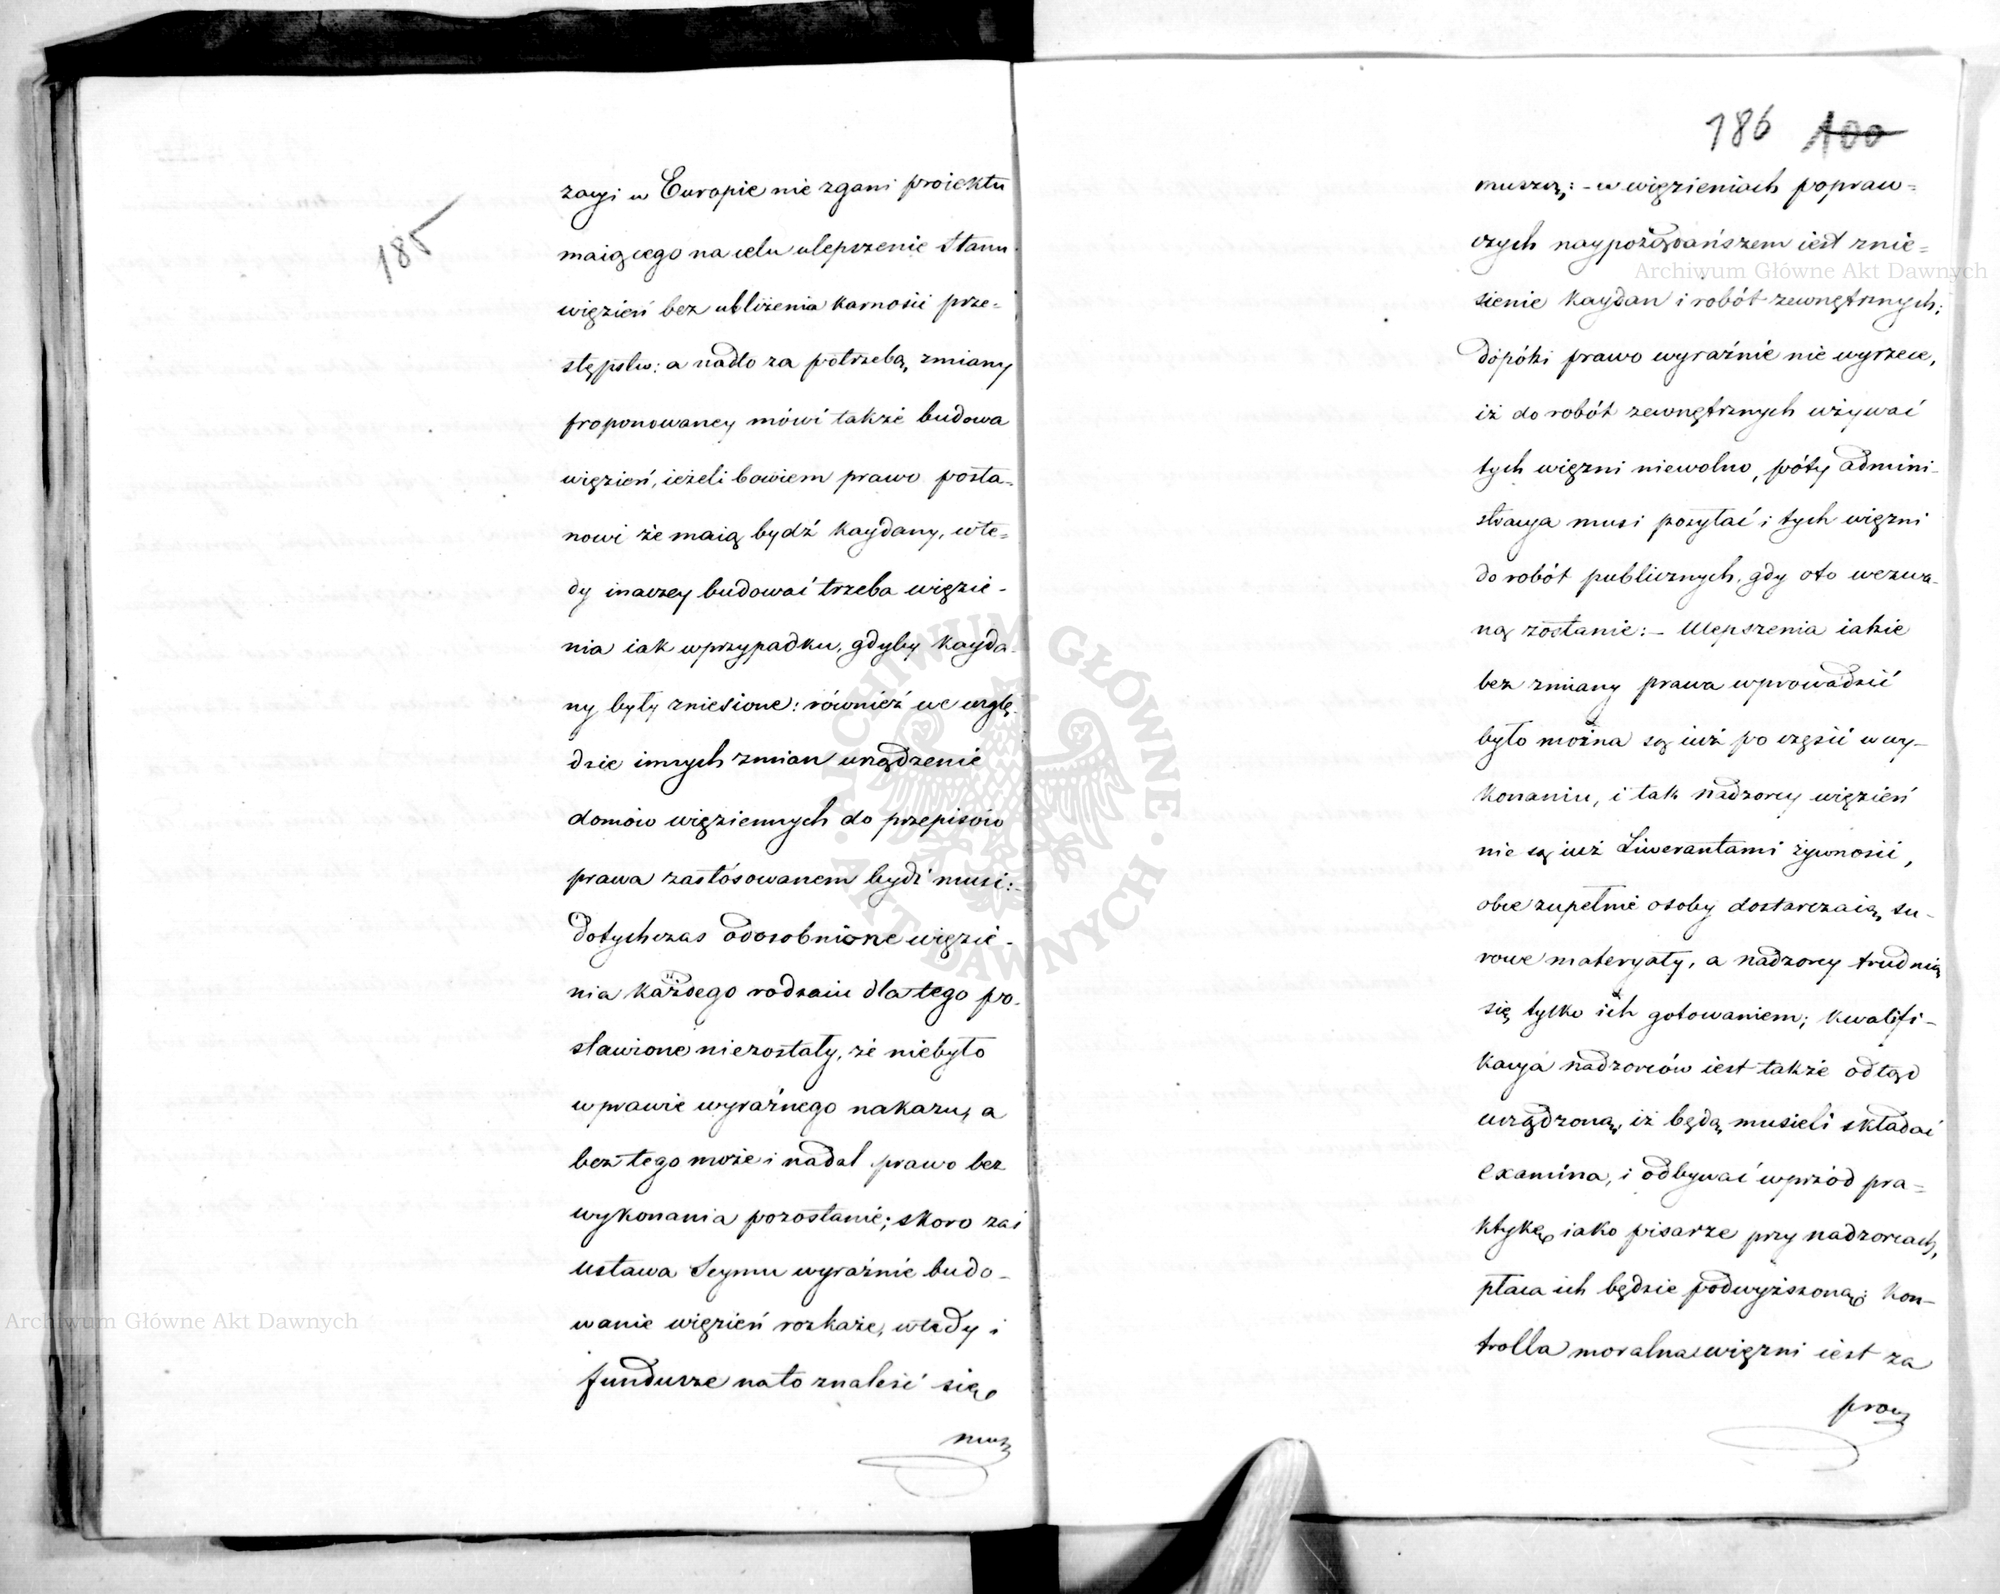 185
zacyi w Europie nie zgani proiektu
maiącego na celu ulepszenie stanu
więzień bez ubliżenia karności prze-
stępstw: a nadto za potrzebą zmiany
proponowaney mówi także budowa
więzień, ieżeli bowiem prawo posta-
nowi że maią bydź kaydany, wte-
dy inaczey budować trzeba więzie-
nia iak w przypadku, gdyby kayda-
ny były zniesione: również we wzglę-
dzie innych zmian urządzenie
domów więziennych do przepisów
prawa zastósowanem bydź musi:-
Dotychczas odosobnione więzie-
nia każdego rodzaiu dlatego po-
stawione niezostały, że niebyło
w prawie wyraźnego nakazu, a
bez tego może i nadal prawo bez
wykonania pozostanie; skoro zaś
ustawa Seymu wyraźnie budo-
wanie więzień rozkaże, wtedy i
fundusze na to znaleść się
musz
186 100
muszą: - w więzieniach popraw-
czych naypożądańszem iest znie-
sienie kaydan i robót zewnętrznych;
dopóki prawo wyraźnie nie wyrzecze,
iż do robót zewnętrznych używać
tych więzni niewolno, póty admini-
stracya musi posyłać i tych więzni
do robót publicznych, gdy oto wezwa-
ną zostanie: - Ulepszenia iakie
bez zmiany prawa wprowadzić
było można są iuż po części w wy-
konaniu, i tak nadzorcy więzień
nie są iuż Liwerantami żywności,
obce zupełnie osoby dostarczaią su-
rowe materyały, a nadzorcy trudnią
się tylko ich gotowaniem; kwalifi-
kacya nadzorców iest także odtąd
urządzoną, iż będą musieli składać
examina, i odbywać wprzód pra-
ktykę iako pisarze przy nadzorcach,
płaca ich będzie podwyższoną: kon-
trolla moralna więzni iest za
prow
Archiwum Główne Akt Dawnych
Archiwum Główne Akt Dawnych
ARCHIWUM GŁÓWNE AKT DAWNYCH